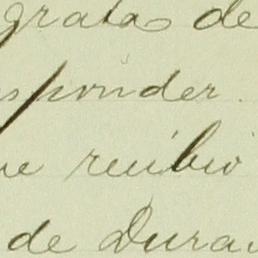 gratas de
sponder.
ue recibió
de Dura